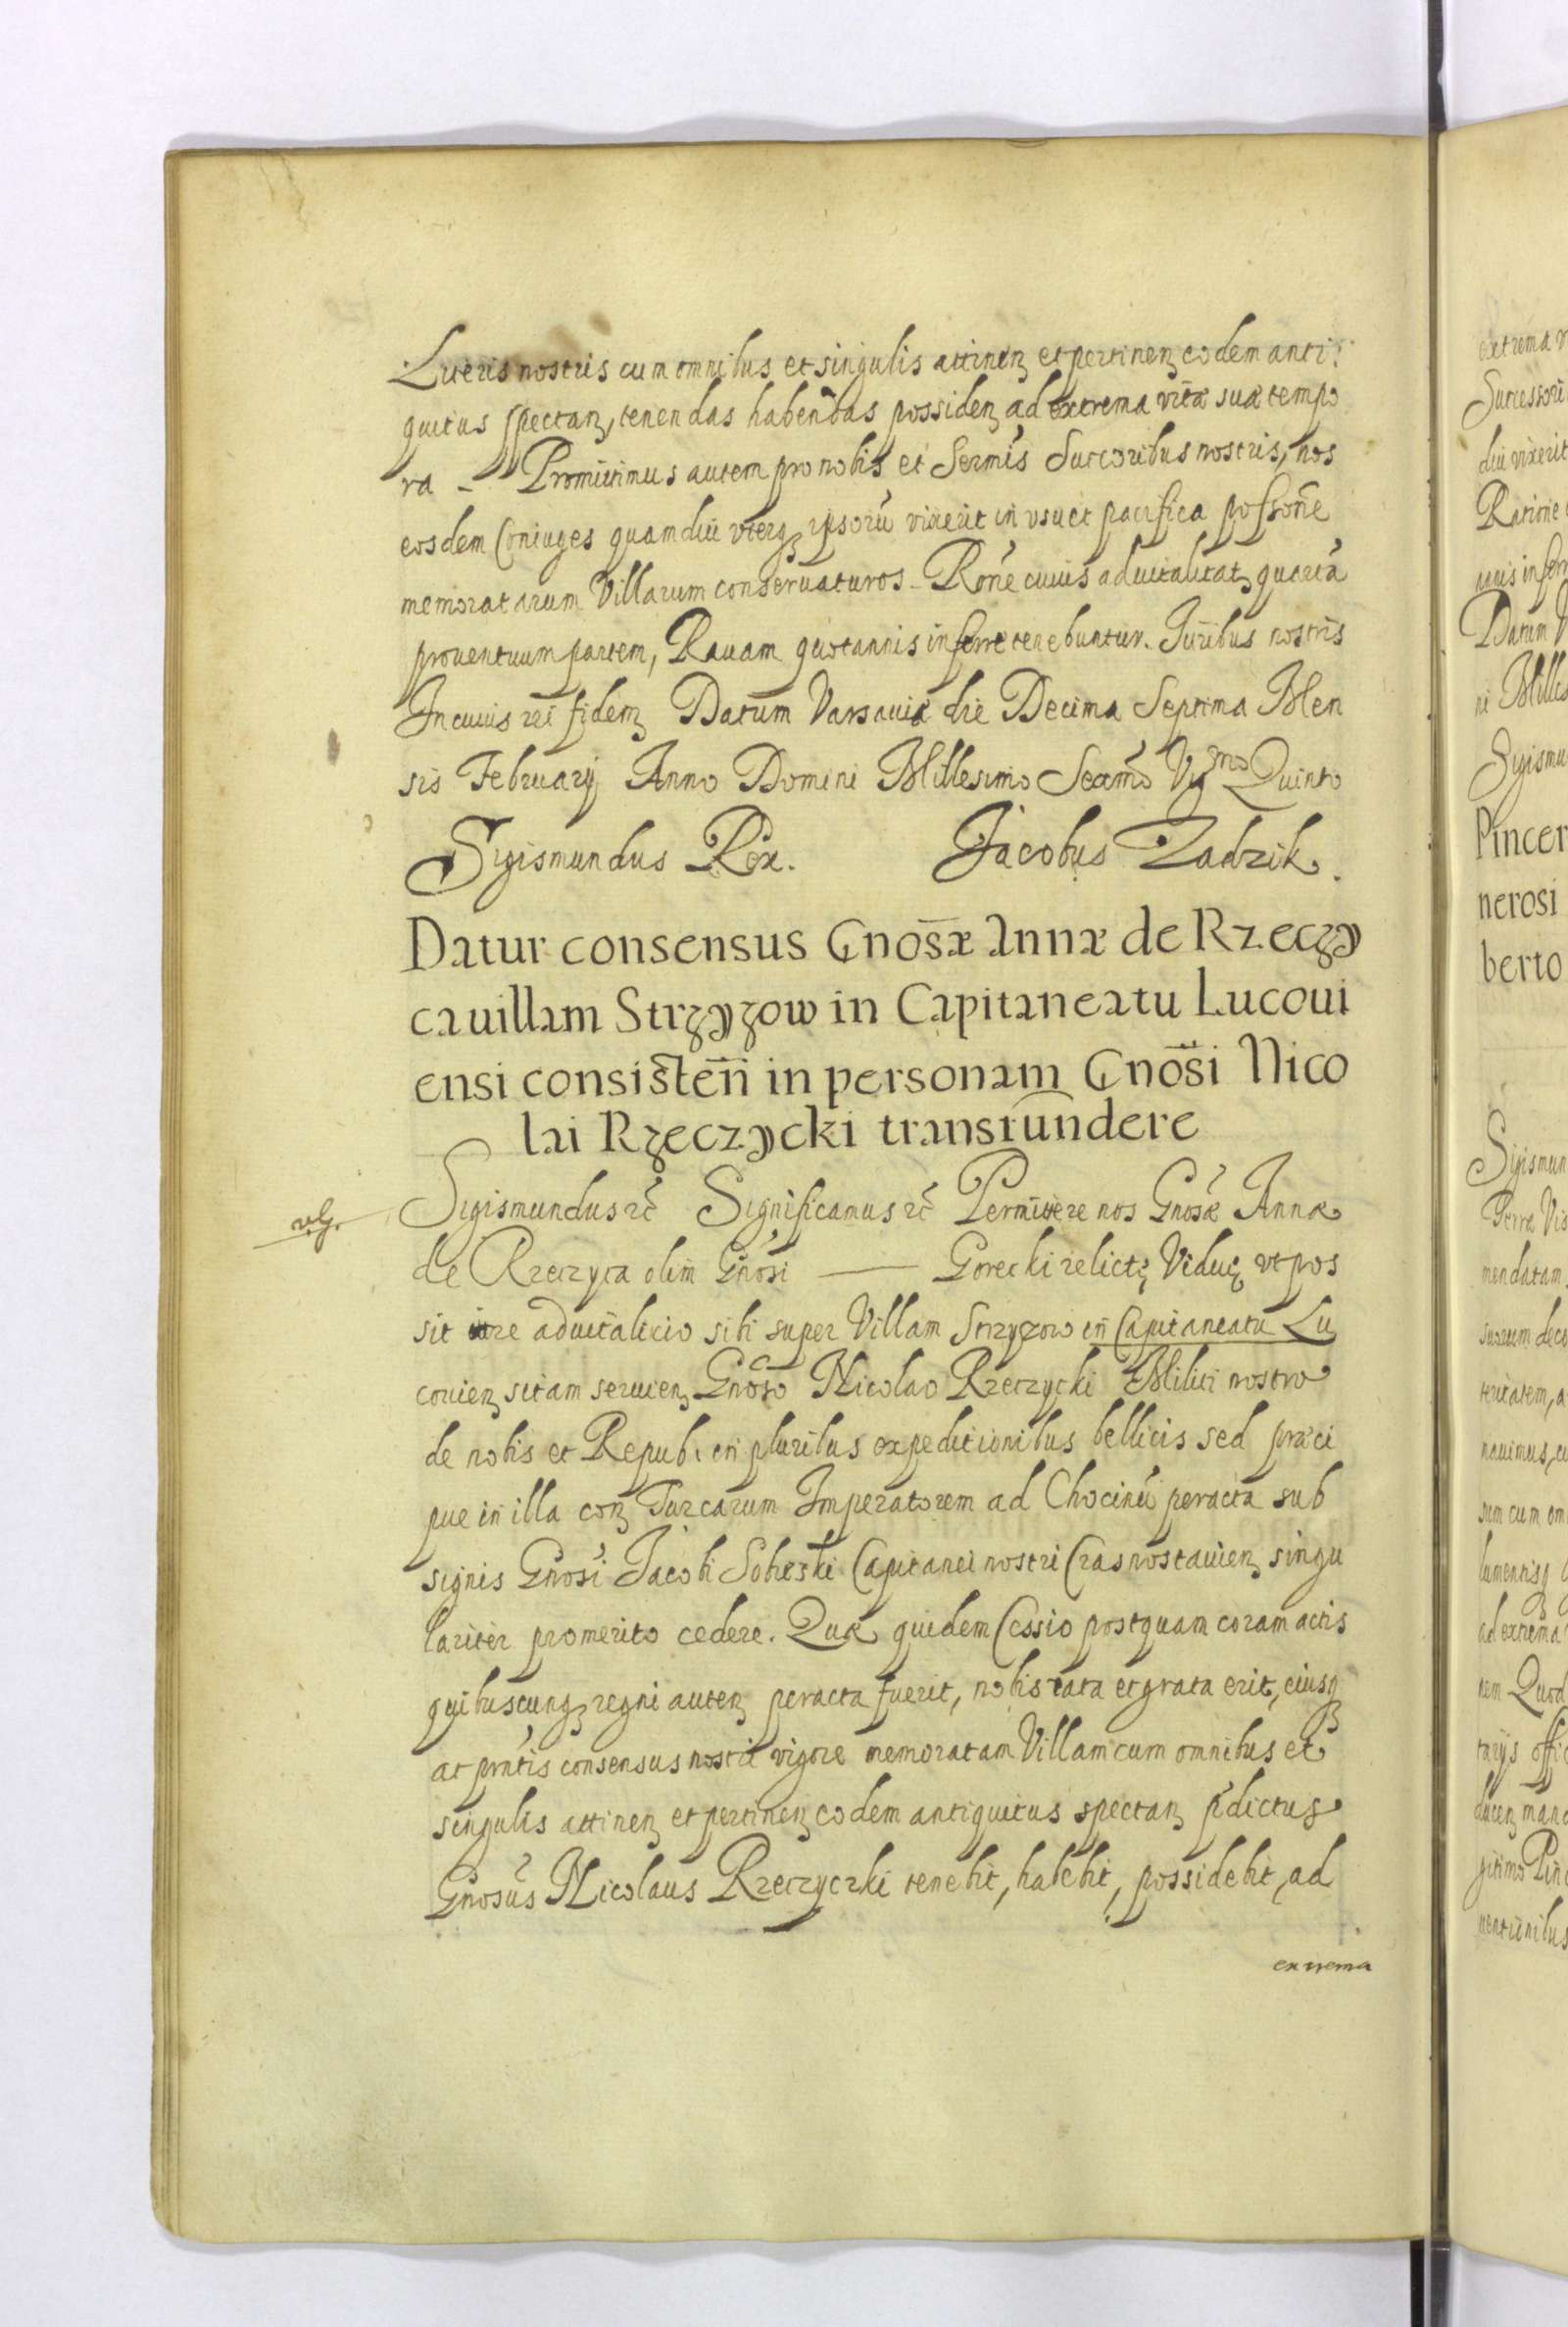 Literis nostris cum omnibus et singulis attinen et pertinen eodem anti
quitus spectan, tenendas habendas possiden ad extrema vitæ suæ tempo
ra - Promittimus autem pro nobis et Sermis Succoribus nostris, nos
eosdem Coniuges quamdiu vterq ipsorũ vixerit in vsu et pacifica possone
memoratarum Villarum conseruaturos - Rone cuius aduitalitat quartã
prouentuum partem, Rauam quotannis inferre tenebuntur. Juribus nostris
In cuius rei fidem Datum Varsauiæ die Decima Septima Men
sis Februarij Anno Domini Millesimo Sexmo Vigmo Quinto
Sigismundus Rex. Jacobus Zadzik.
Datur consensus Gnosæ Annæ de Rzeczy
ca villam Strzyzow in Capitaneatu Lucoui
ensi consisten in personam Gnosi Nico
lai Rzeczycki transfundere
Sigismundus etc Significamus etc Permittere nos Gnosæ Annæ
de Rzeczyca olim Gnosi — Gorecki relictę Viduę vt pos
sit iure aduitalicio sibi super Villam Strzyzow in Capitaneatu Lu
couien sitam seruien Gnoso Nicolao Rzeczycki Militi nostro
de nobis et Repub. in pluribus expeditionibus bellicis sed præci
pue in illa con Turcarum Imperatorem ad Chocinũ peracta sub
signis Gnosi Jacobi Sobieski Capitanei nostri Crasnostauien singu
lariter promerito cedere. Quæ quidem Cessio postquam coram actis
quibuscunq regni auten peracta fuerit, nobis rata et grata erit, eiusq
at pntis consensus nostri vigore memoratam Villam cum omnibus et
singulis attinen et pertinen eodem antiquitus spectan pdictus
Gnosus Nicolaus Rzeczyczki tenebit, habebit, possidebit, ad
extrema